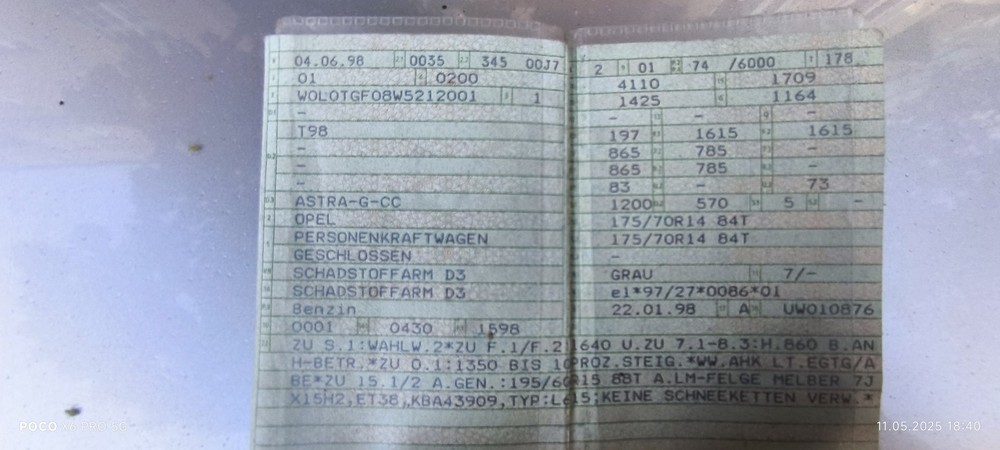 04.06.98 0035 345 00J7
01 0200
W0L0TGF08W5212001 1
-
T98
-
-
-
ASTRA-G-CC
OPEL
PERSONENKRAFTWAGEN
GESCHLOSSEN
SCHADSTOFFARM D3
SCHADSTOFFARM D3
Benzin
0001 0430 1598
2 01 74 /6000 178
4110 1709
1425 1164
- - -
197 1615 1615
865 785 -
865 785 -
83 - 73
1200 570 5 -
175/70R14 84T
175/70R14 84T
-
GRAU 7/-
e1*97/27*0086*01
22.01.98 A UW010876
ZU S.1:WAHLW.2*ZU F.1/F.2:1640 U.ZU 7.1-8.3:H.860 B.AN
H-BETR.*ZU O.1:1350 BIS 10PROZ.STEIG.*WW.AHK LT.EGTG/A
BE*ZU 15.1/2 A.GEN.:195/60R15 88T A.LM-FELGE MELBER 7J
X15H2,ET38,KBA43909,TYP:L615;KEINE SCHNEEKETTEN VERW.*
POCO
11.05.2025 18:40